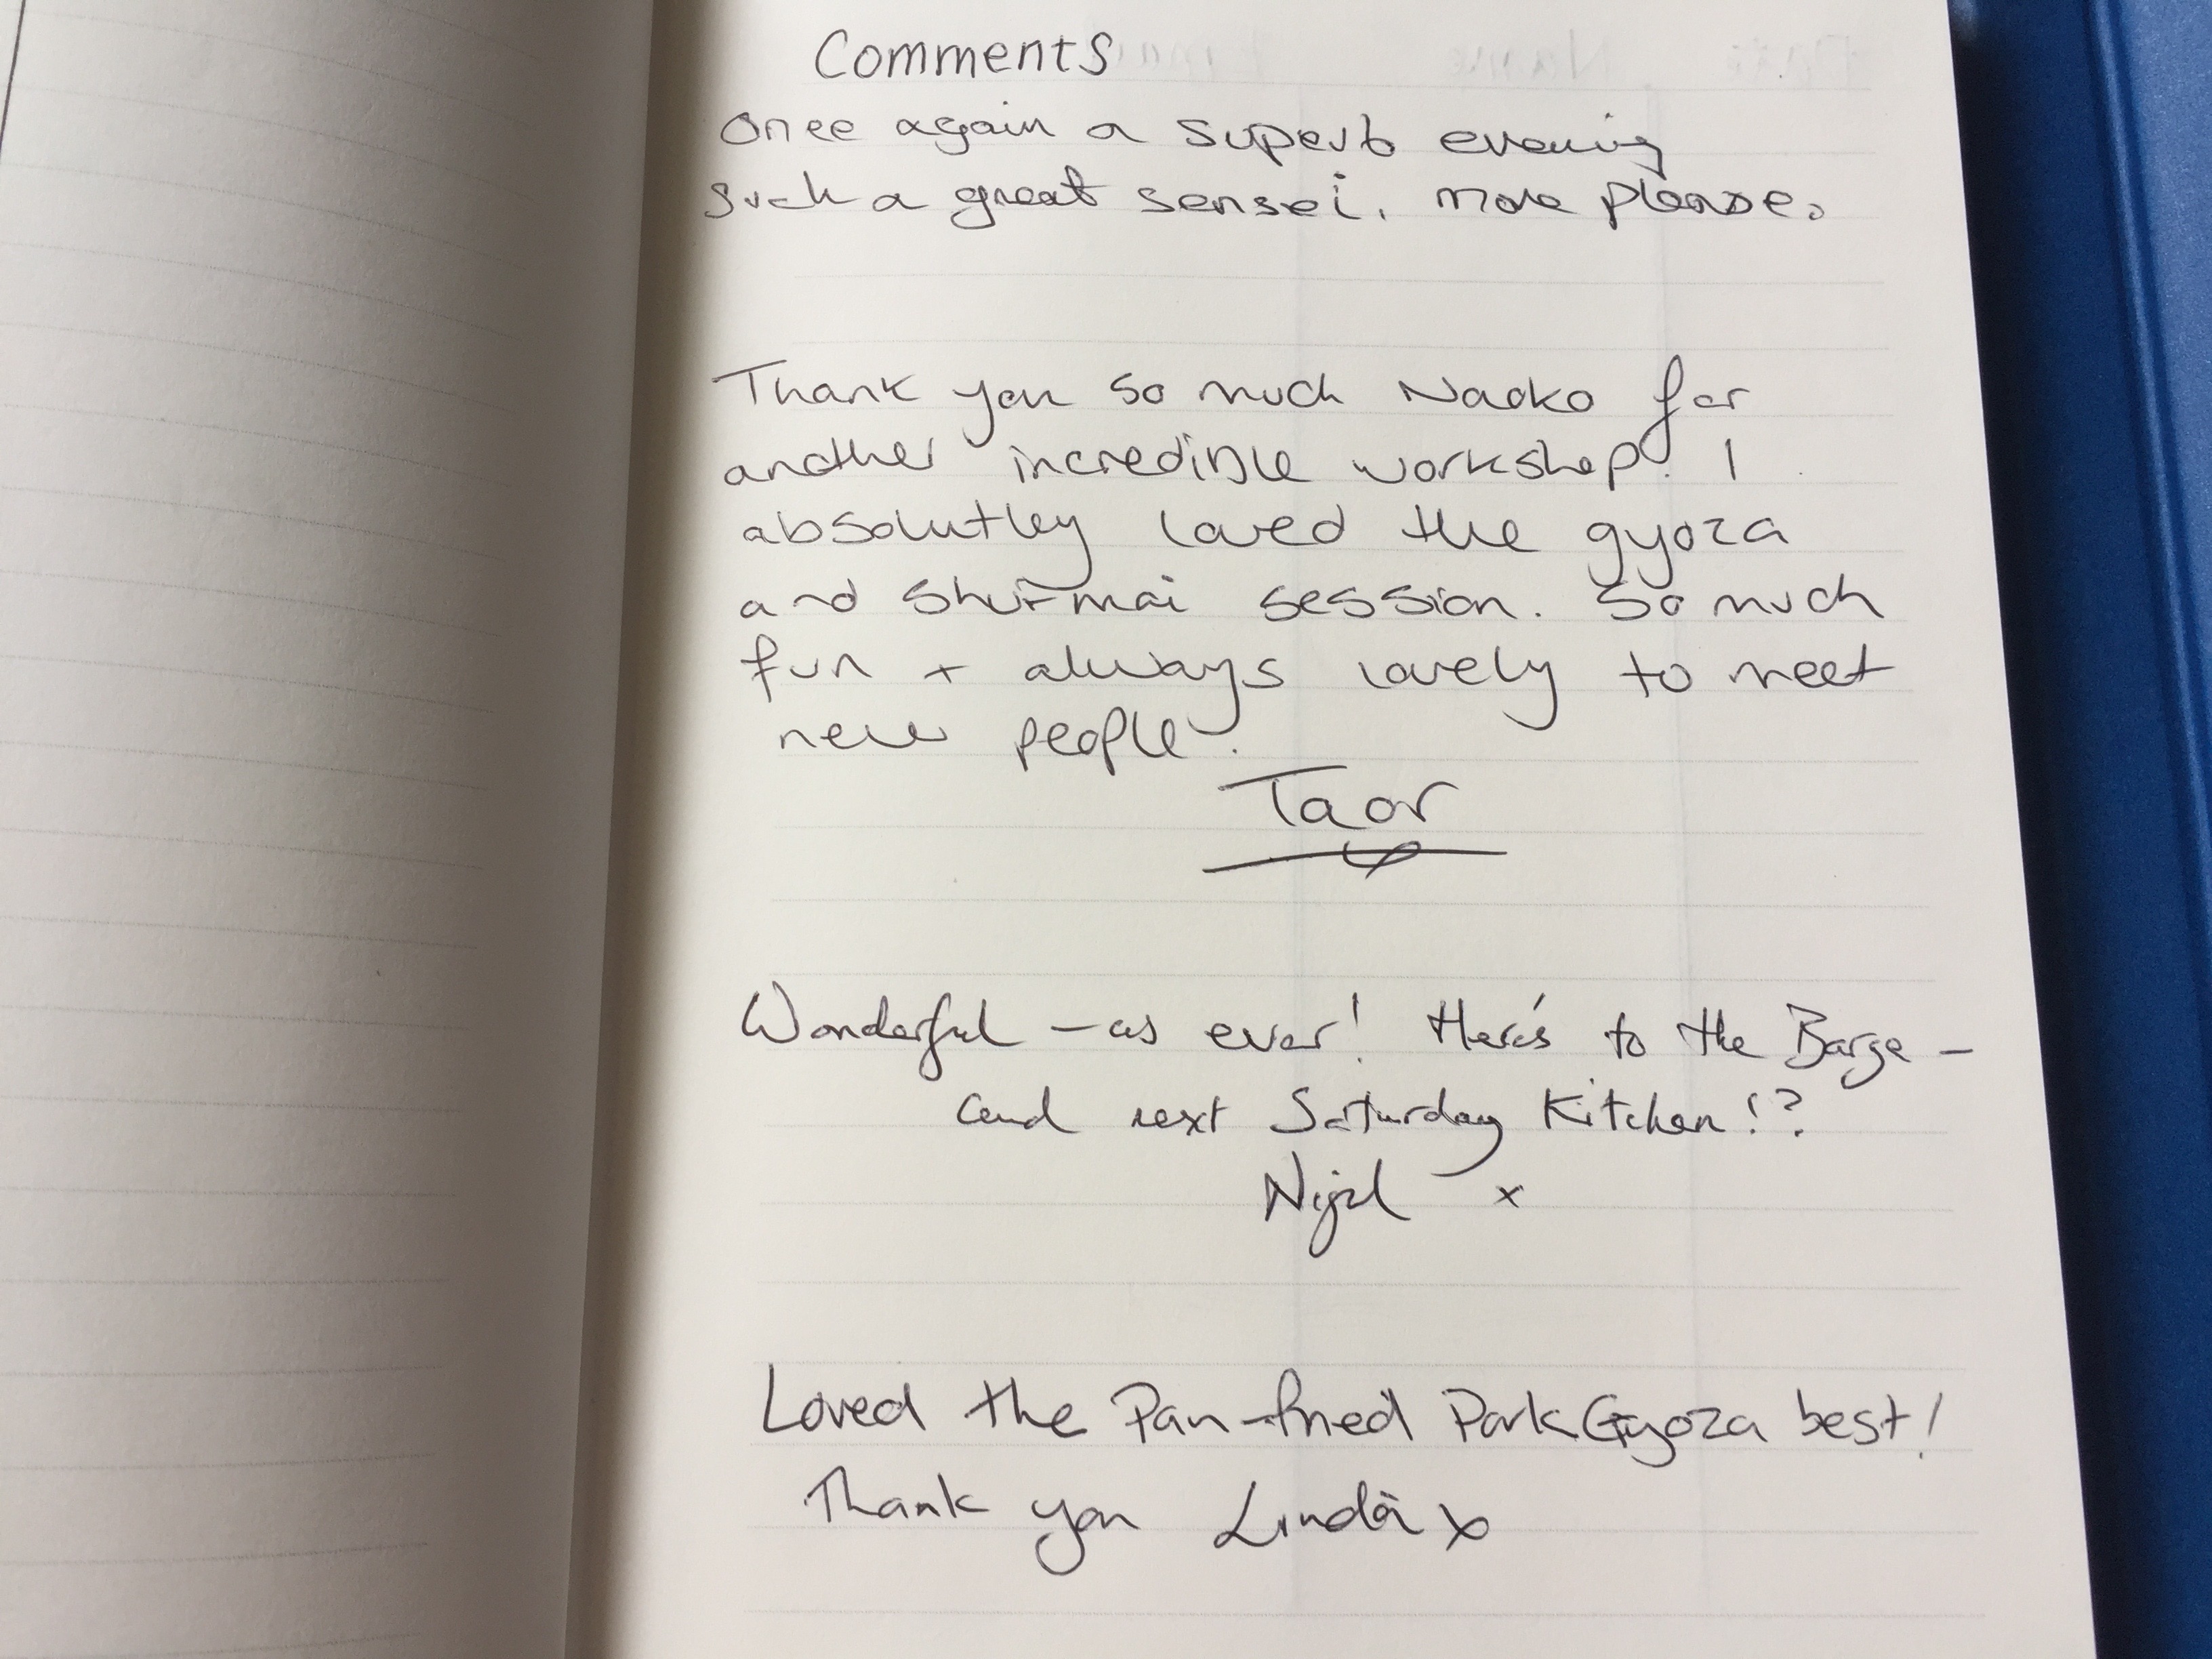 Comments
Once again a superb evening
such a great sensei. more please.
Thank you so much Naoko for
another incredible workshop! I
absolutley loved the gyoza
and shu-mai session. So much
fun + always lovely to meet
new people.
Taor
Wonderful - as ever! Here's to the Barge -
and next Saturday Kitchen!?
Nigel x
Loved the Pan-fried Pork Gyoza best!
Thank you Linda x